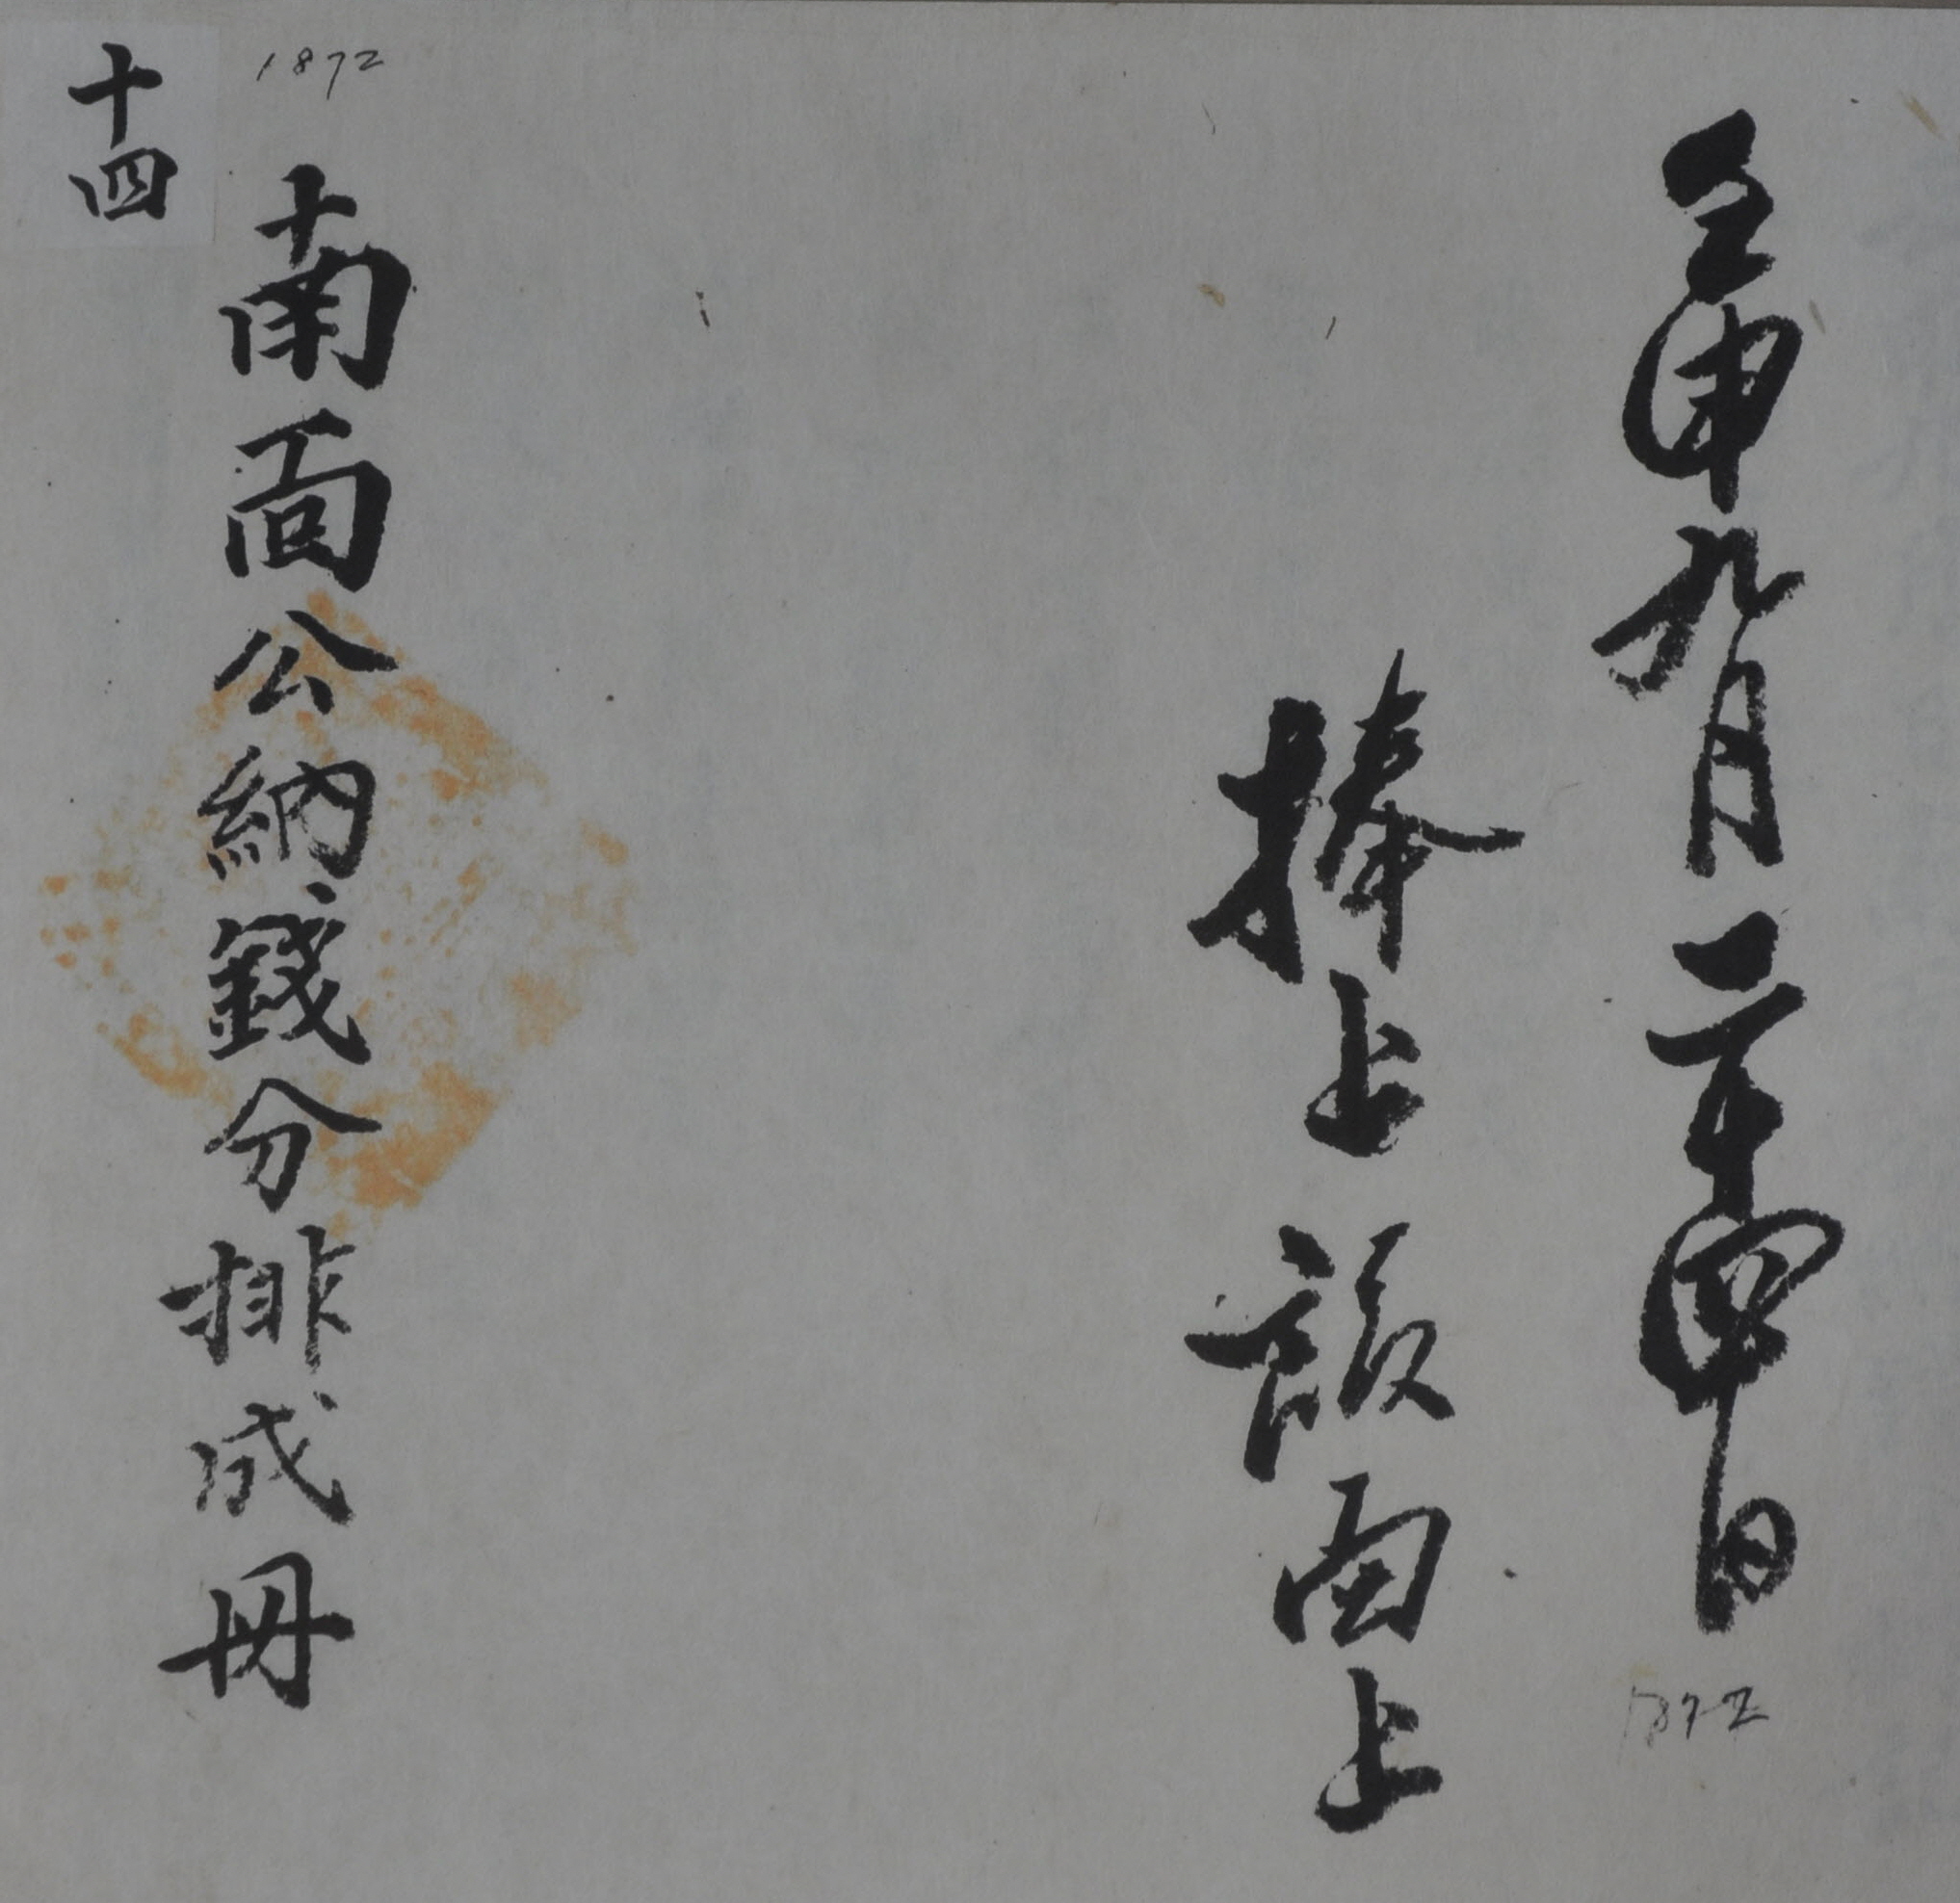 壬申九月二十四日
1872
捧上該面上
1872
南面公納錢分排成冊
十四